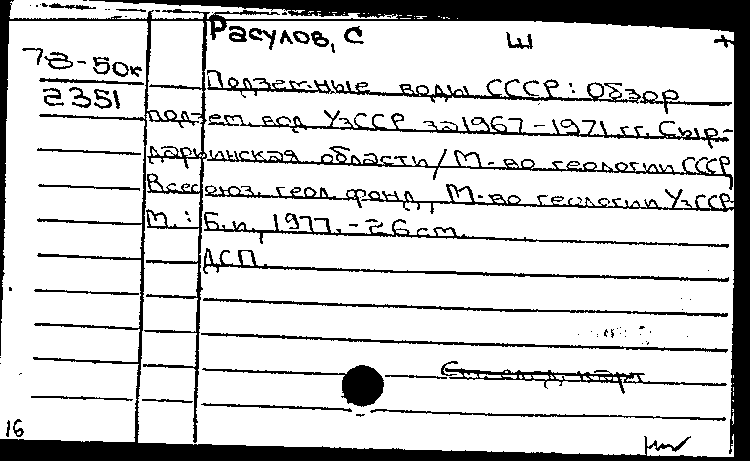 Расулов, С Ш +
78-50к
2351
Подземные воды СССР: Обзор
подзем. вод УзССР за 1967-1971 гг. Сыр-
дарьинская области/М-во геологии СССР,
Всесоюз. геол. фонд, М-во геологии УзССР.
М.: Б.и., 1977. - 26 см.
ДСП.
след. карт
16